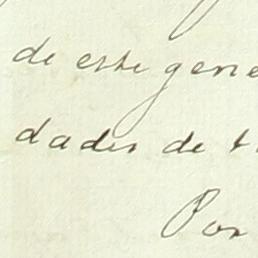 de este gene
dades de t
Por